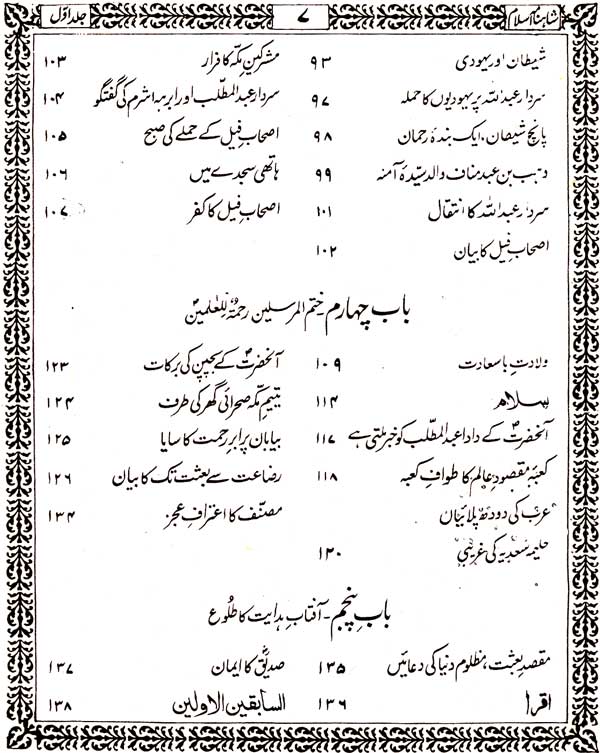 شاہنامہ اسلام
۷
جلد اوّل
شیطان اور یہودی ۹۳
سردار عبداللہ پر یہودیوں کا حملہ ۹۷
پانچ شیطان، ایک بندۂ رحمان ۹۸
وہب بن عبد مناف والد سیّدہ آمنہ ۹۹
سردار عبداللہ کا انتقال ۱۰۱
اصحابِ فیل کا بیان ۱۰۲
مشرکینِ مکّہ کا فرار ۱۰۳
سردار عبدالمطلب اور ابرہہ اشرم کی گفتگو ۱۰۴
اصحابِ فیل کے حملے کی صبح ۱۰۵
ہاتھی سجدے میں ۱۰۶
اصحابِ فیل کا کفر ۱۰۷
باب چہارم ختم المرسلین رحمۃٌ للعٰلمینؐ
ولادتِ باسعادت ۱۰۹
سلام ۱۱۴
آنحضرتؐ کے دادا عبدالمطلب کو خبر ملتی ہے ۱۱۷
کعبۂ مقصودِ عالم کا طوافِ کعبہ ۱۱۸
عرب کی دودھ پلائیاں
حلیمہ سعدیہ کی غریبی ۱۲۰
آنحضرتؐ کے بچپن کی برکات ۱۲۳
یتیمِ مکّہ صحرائی گھر کی طرف ۱۲۴
بیابان پر ابرِ رحمت کا سایا ۱۲۵
رضاعت سے بعثت تک کا بیان ۱۲۶
مصنّف کا اعترافِ عجز ۱۳۴
بابِ پنجم - آفتابِ ہدایت کا طلُوع
مقصدِ بعثت، مظلوم دنیا کی دعائیں ۱۳۵
اقرا ۱۳۶
صدیقؓ کا ایمان ۱۳۷
السابقین الاولین ۱۳۸